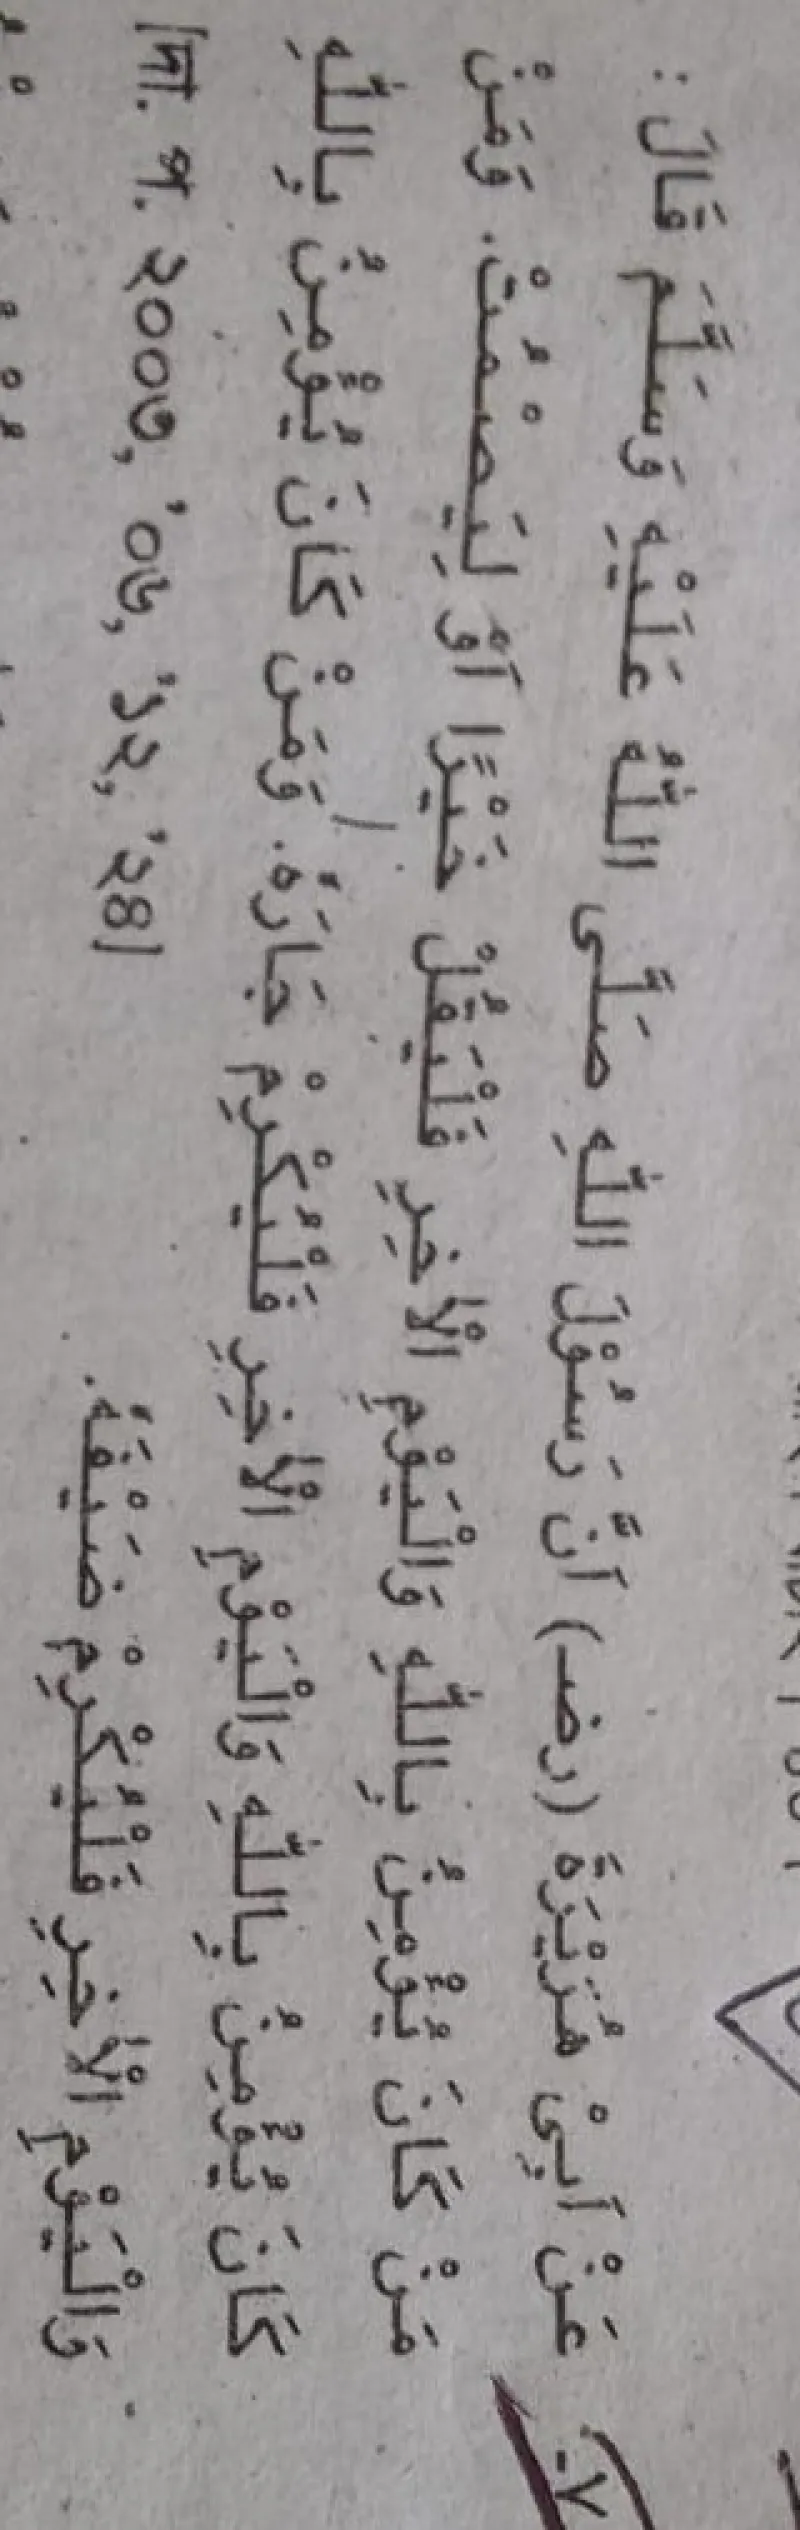 ٧- عَنْ اَبِىْ هُرَيْرَةَ (رضـ) اَنَّ رَسُوْلَ اللّٰهِ صَلَّى اللّٰهُ عَلَيْهِ وَسَلَّمَ قَالَ :
مَنْ كَانَ يُؤْمِنُ بِاللّٰهِ وَالْيَوْمِ الْاٰخِرِ فَلْيَقُلْ خَيْرًا اَوْ لِيَصْمُتْ. وَمَنْ
كَانَ يُؤْمِنُ بِاللّٰهِ وَالْيَوْمِ الْاٰخِرِ فَلْيُكْرِمْ جَارَهٗ. وَمَنْ كَانَ يُؤْمِنُ بِاللّٰهِ
وَالْيَوْمِ الْاٰخِرِ فَلْيُكْرِمْ ضَيْفَهٗ. [দা. প. ২০০৩, '০৬, '১২, '২৪]